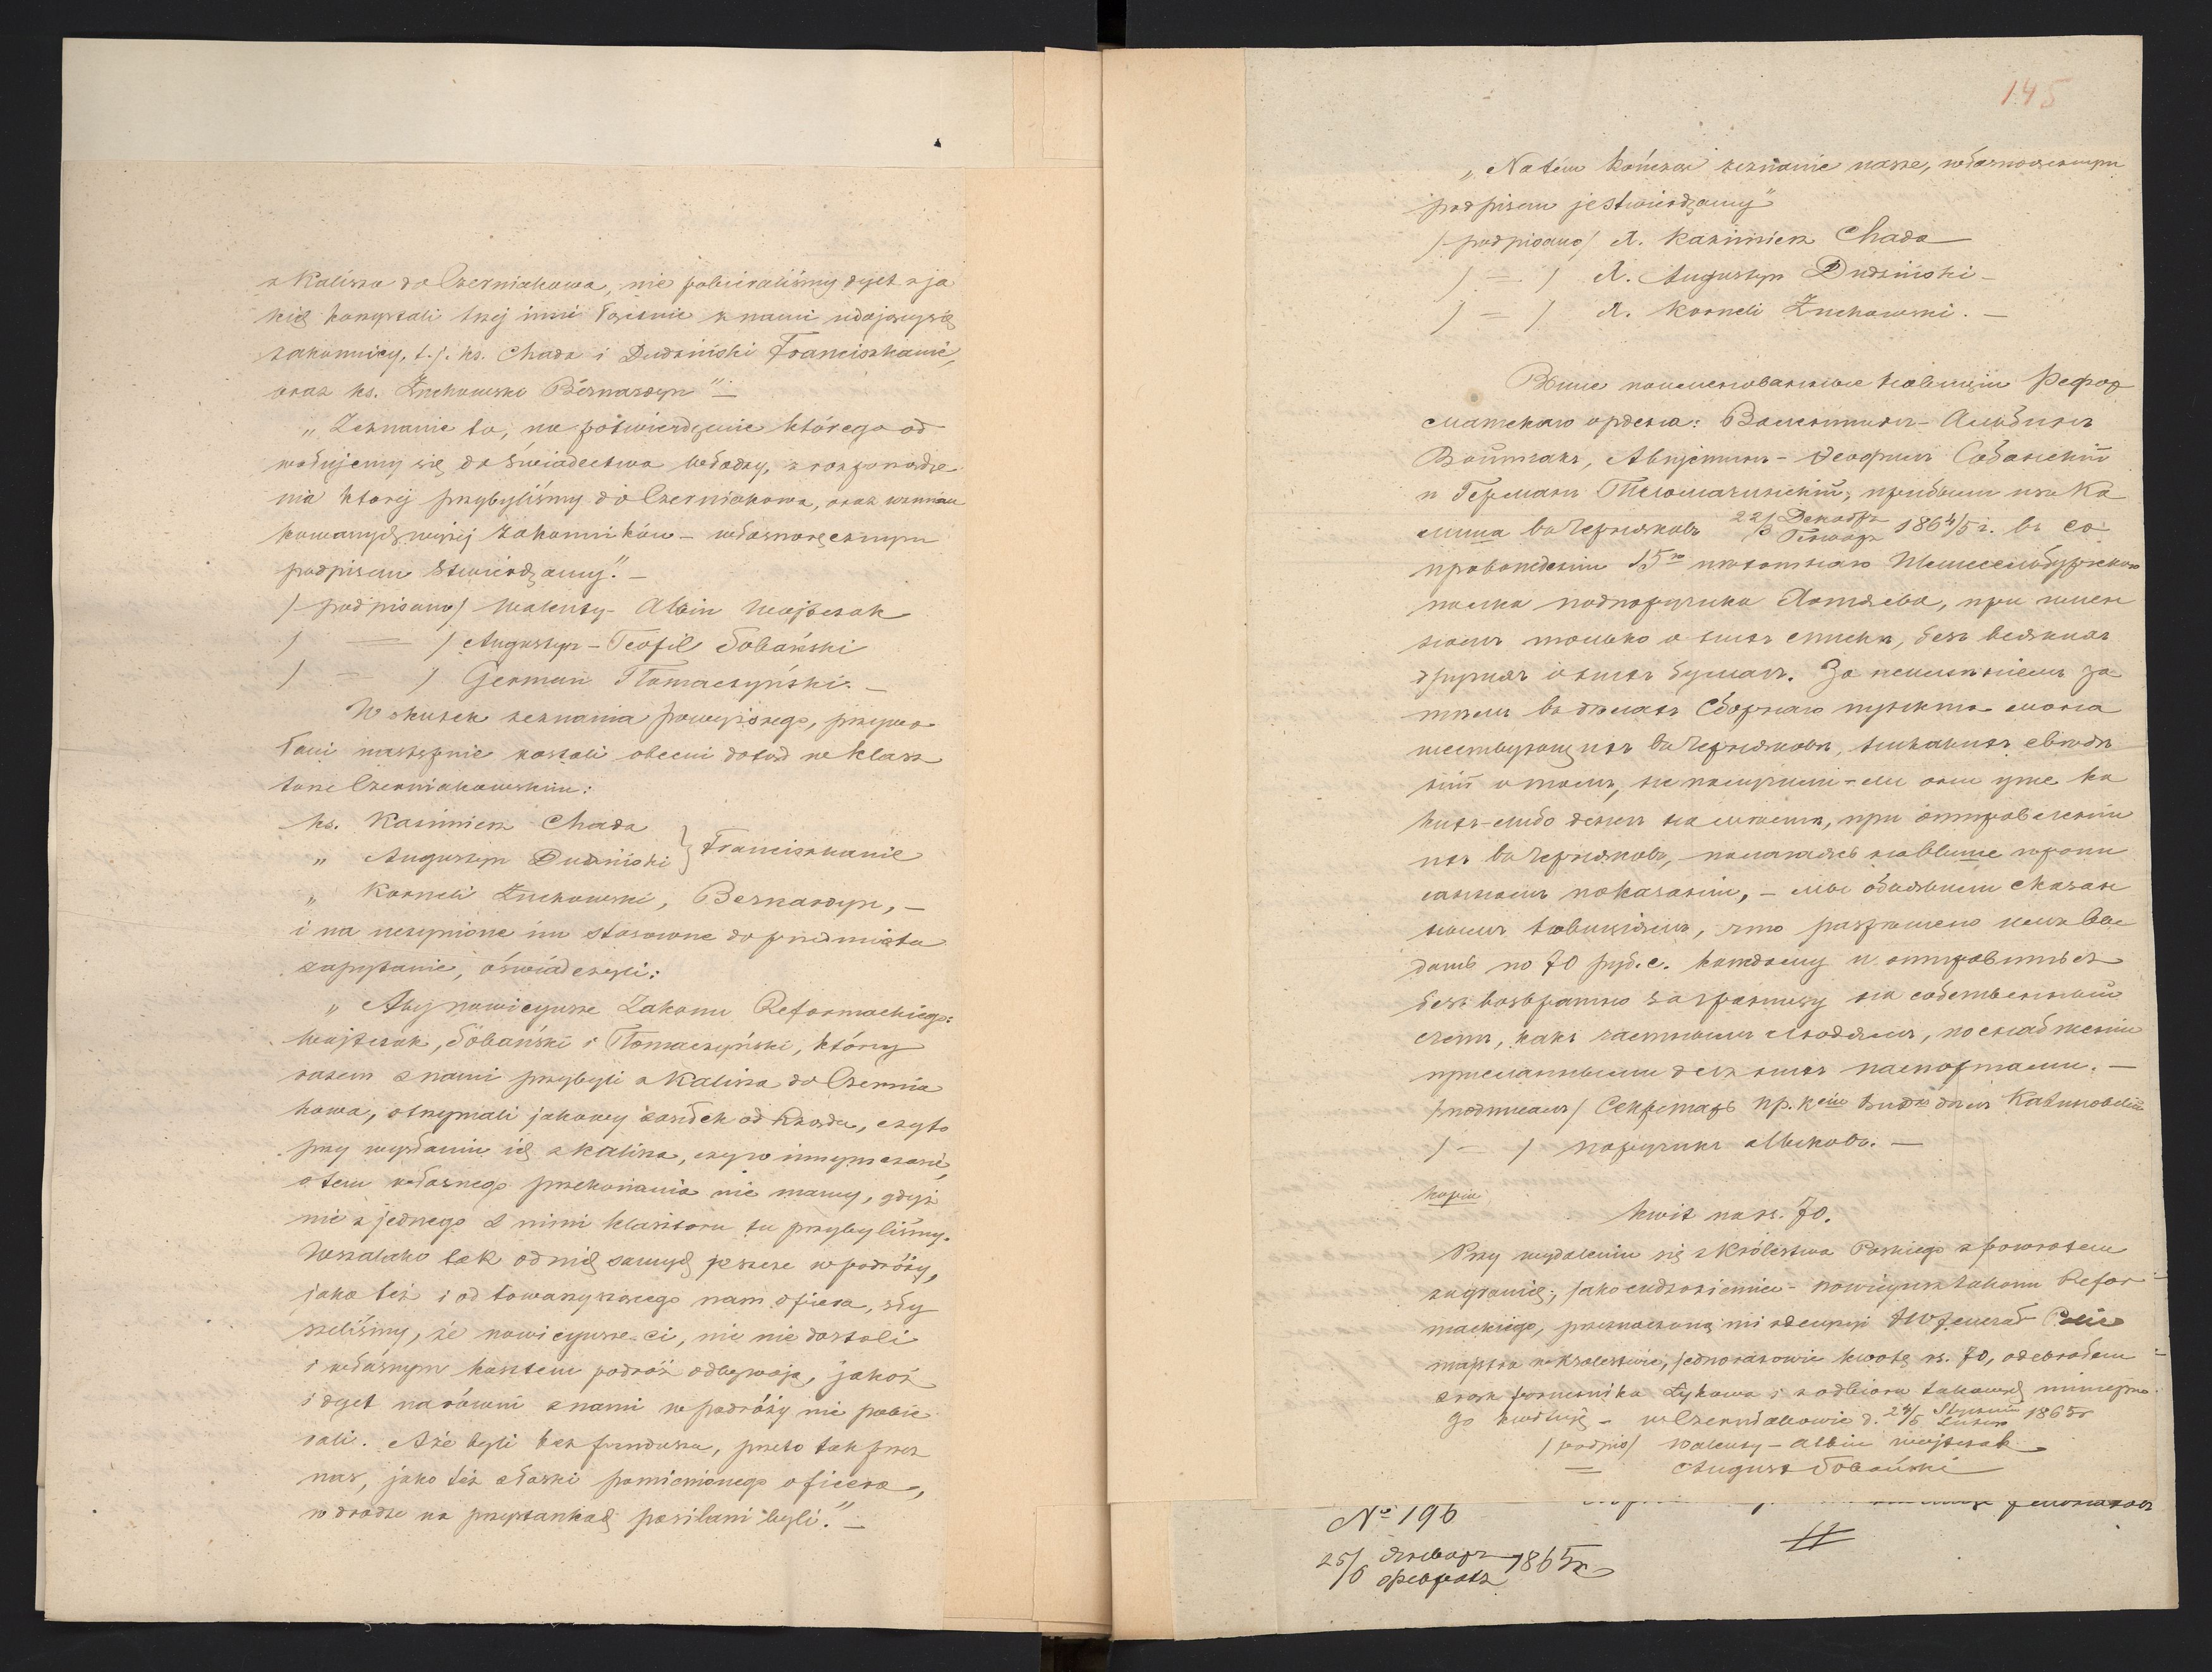 z Kalisza do Czerniakowa, nie pobieraliśmy dyet z ja
kich korzystali trzej inni łącznie z nami udający się
zakonnicy, t.j. ks. Chada i Dudziński Franciszkanie,
oraz ks. Żuchowski Bernardyn" —
„Zeznanie to, na potwierdzenie którego od
wołujemy się do świadectwa władzy, z rozporządze
nia ktorej przybyliśmy do Czerniakowa, oraz wzmian
kowanych wyżej zakonników — własnoręcznym
podpisem stwierdzamy". —
/podpisano/ Walenty - Albin Wojtczak
/ = / Augustyn - Teofil Sobański
/ = / German Tłomaczyński. —
W skutek zeznania powyższego, przywo
łani następnie zostali obecni dotąd w klasz
torze Czerniakowskim:
ks. Kazimierz Chada
„ Augustyn Dudziński } Franciszkanie
„ Korneli Żuchowski, Bernardyn, —
i na uczynione im stosowne do przedmiotu
zapytanie, oświadczyli:
„Aby nowicyusze Zakonu Reformackiego:
Wojtczak, Sobański i Tłomaczyński, którzy
razem z nami przybyli z Kalisza do Czernia
kowa, otrzymali jakowy zasiłek od Rządu, czyto
przy wysłaniu ich z Kalisza, czy w innym czasie,
o tem własnego przekonania nie mamy, gdyż
nie z jednego z nimi klasztoru tu przybyliśmy.
Wszelako tak od nich samych jeszcze w podróży,
jako też i od towarzyszącego nam oficera, sły
szeliśmy, że nowicyusze ci, nic nie dostali
i własnym kosztem podróż odbywają, jakoż
i dyet narówni z nami w podróży nie pobie
rali. A że byli bez funduszu, przeto tak przez
nas, jako też z łaski pomienionego oficera,
w drodze na przystankach posilani byli." —
145
„Na tém kończąc zeznanie nasze, własnoręcznym
podpisem je stwierdzamy"
/podpisano/ X. Kazimierz Chada
/ = / X. Augustyn Dudziński —
/ = / X. Korneli Żuchowski. —
Выше поименованные новиціи Рефор
матскаго ордена: Валентинъ - Альбинъ
Войтчакъ, Августинъ - Теофилъ Собанскій
и Германъ Тломачинскій, прибыли изъ Ка
лиша въ Черняковъ 22/3 Декабр/Генвар 1864/5 г. въ со
провожденіи 15го пехотнаго Шлиссельбургскаго
полка подпоручика Лотяева, при имен
номъ только о нихъ списки, безъ всякихъ
другихъ о нихъ бумагъ. За неимѣніемъ за
тѣмъ въ дѣлахъ Сборнаго пункта мона
шествующихъ въ Черняковѣ, никакихъ свѣдѣ
ній о томъ, не получили-ли они уже ка
кихъ-либо денегъ на мѣстѣ, при отправленіи
ихъ въ Черняковъ, полагаясь на выше пропи
санномъ показаніи, — мы объявили сказан
нымъ новиціямъ, что разрешено имъ вы
дать по 70 руб. с. каждому и отправиться
безъ возвратно за границу на собственный
счетъ, какъ частнымъ людямъ, по снабженіи
присланными для нихъ паспортами. —
/подписалъ/ Секретарь пр. к
/ = / поручикъ Быковъ. —
Kopia
Kwit na rs. 70.
Przy wydaleniu się z Królestwa Polskiego z powrotem
zagranicę, jako cudzoziemiec - nowicyusz Zakonu Refor-
mackiego, przeznaczoną mi z decyzyi JW Jenerał Polic
majstra w Królestwie, jednorazowie kwotę rs. 70, odebrałem
z rąk porucznika Łykowa i z odbioru takowej niniejsze
go kwituję — w Czerniakowie d. 24/5 Stycznia/Lutego 1865 r
/podpis/ Walenty - Albin Wojtczak
= August Sobański
№ 196
25/6 Января/Февраля 1865 г